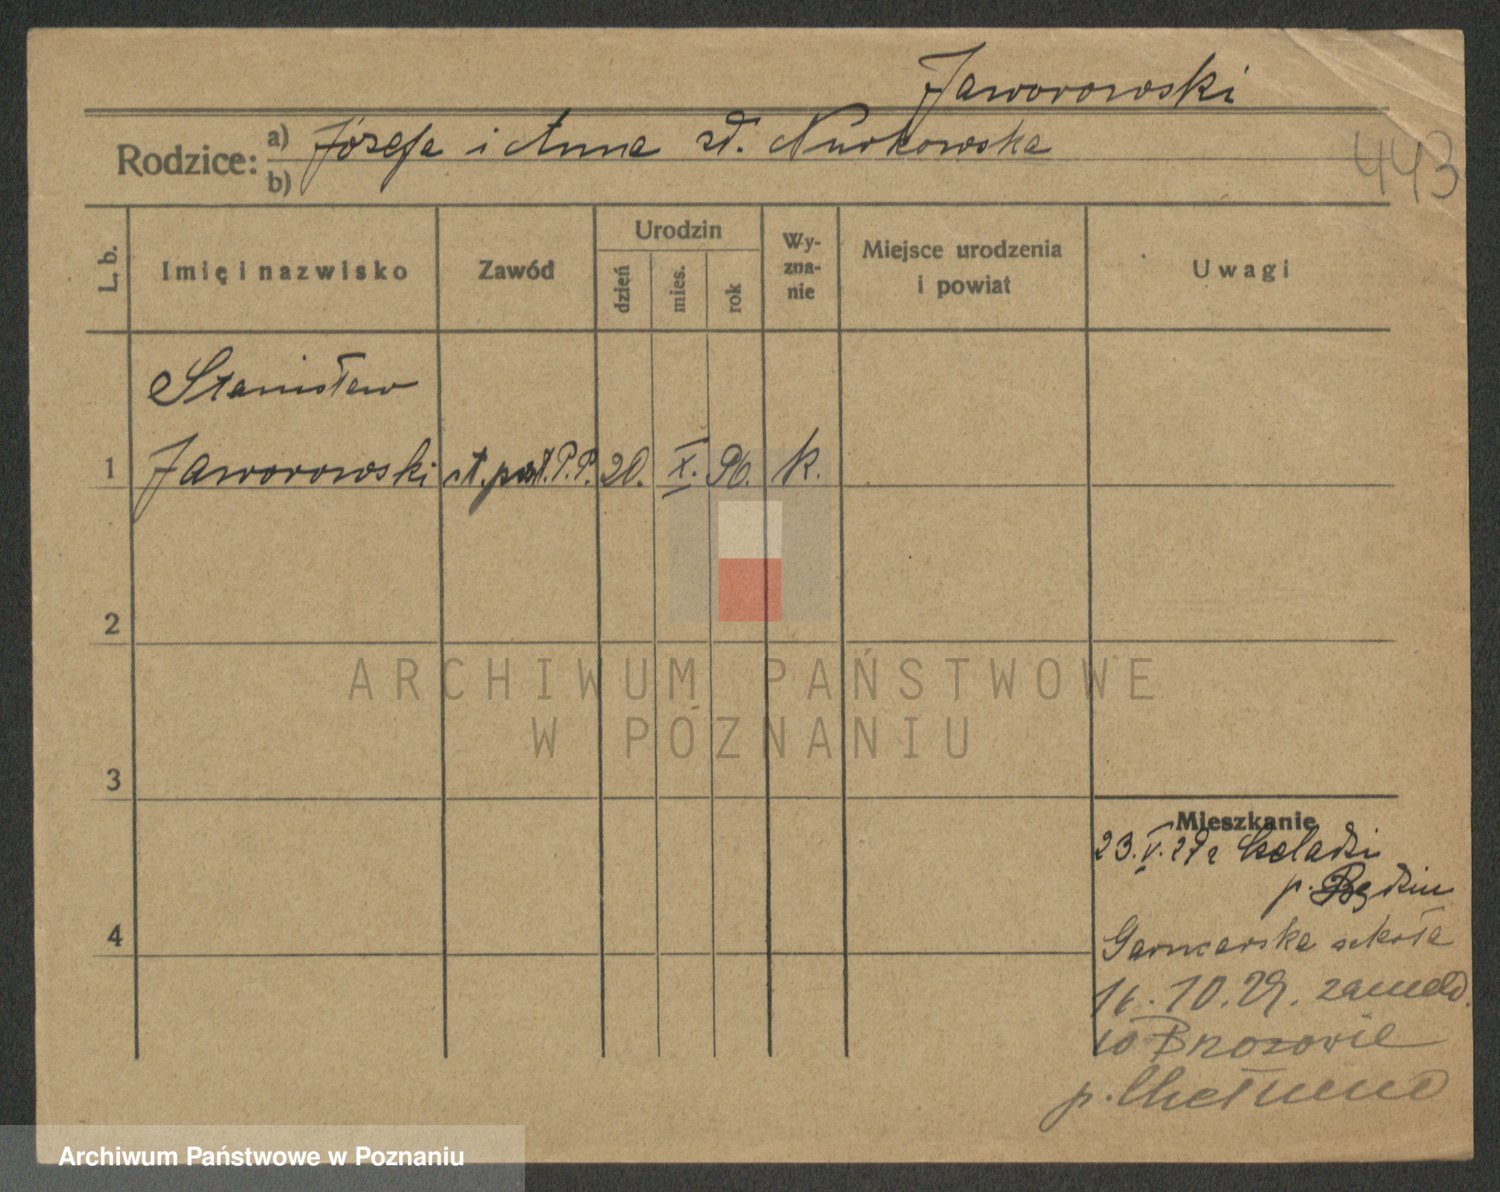 Jaworowski
443
Rodzice: a) Józefa i Anna zd. Nurkowska
b)
L. b.
Imię i nazwisko
Zawód
Urodzin
dzień
mies.
rok
Wy-
zna-
nie
Miejsce urodzenia
i powiat
Uwagi
Stanisław
1 Jaworowski st. post. P.P. 20. X. 96. k.
2
ARCHIWUM PAŃSTWOWE
W POZNANIU
3
Mieszkanie
23. V. 27 r Czeladzi
p. Będzin
4
Garncarska szkoła
16. 10. 29. zameld.
w Brozowie
p. Chełmno
Archiwum Państwowe w Poznaniu